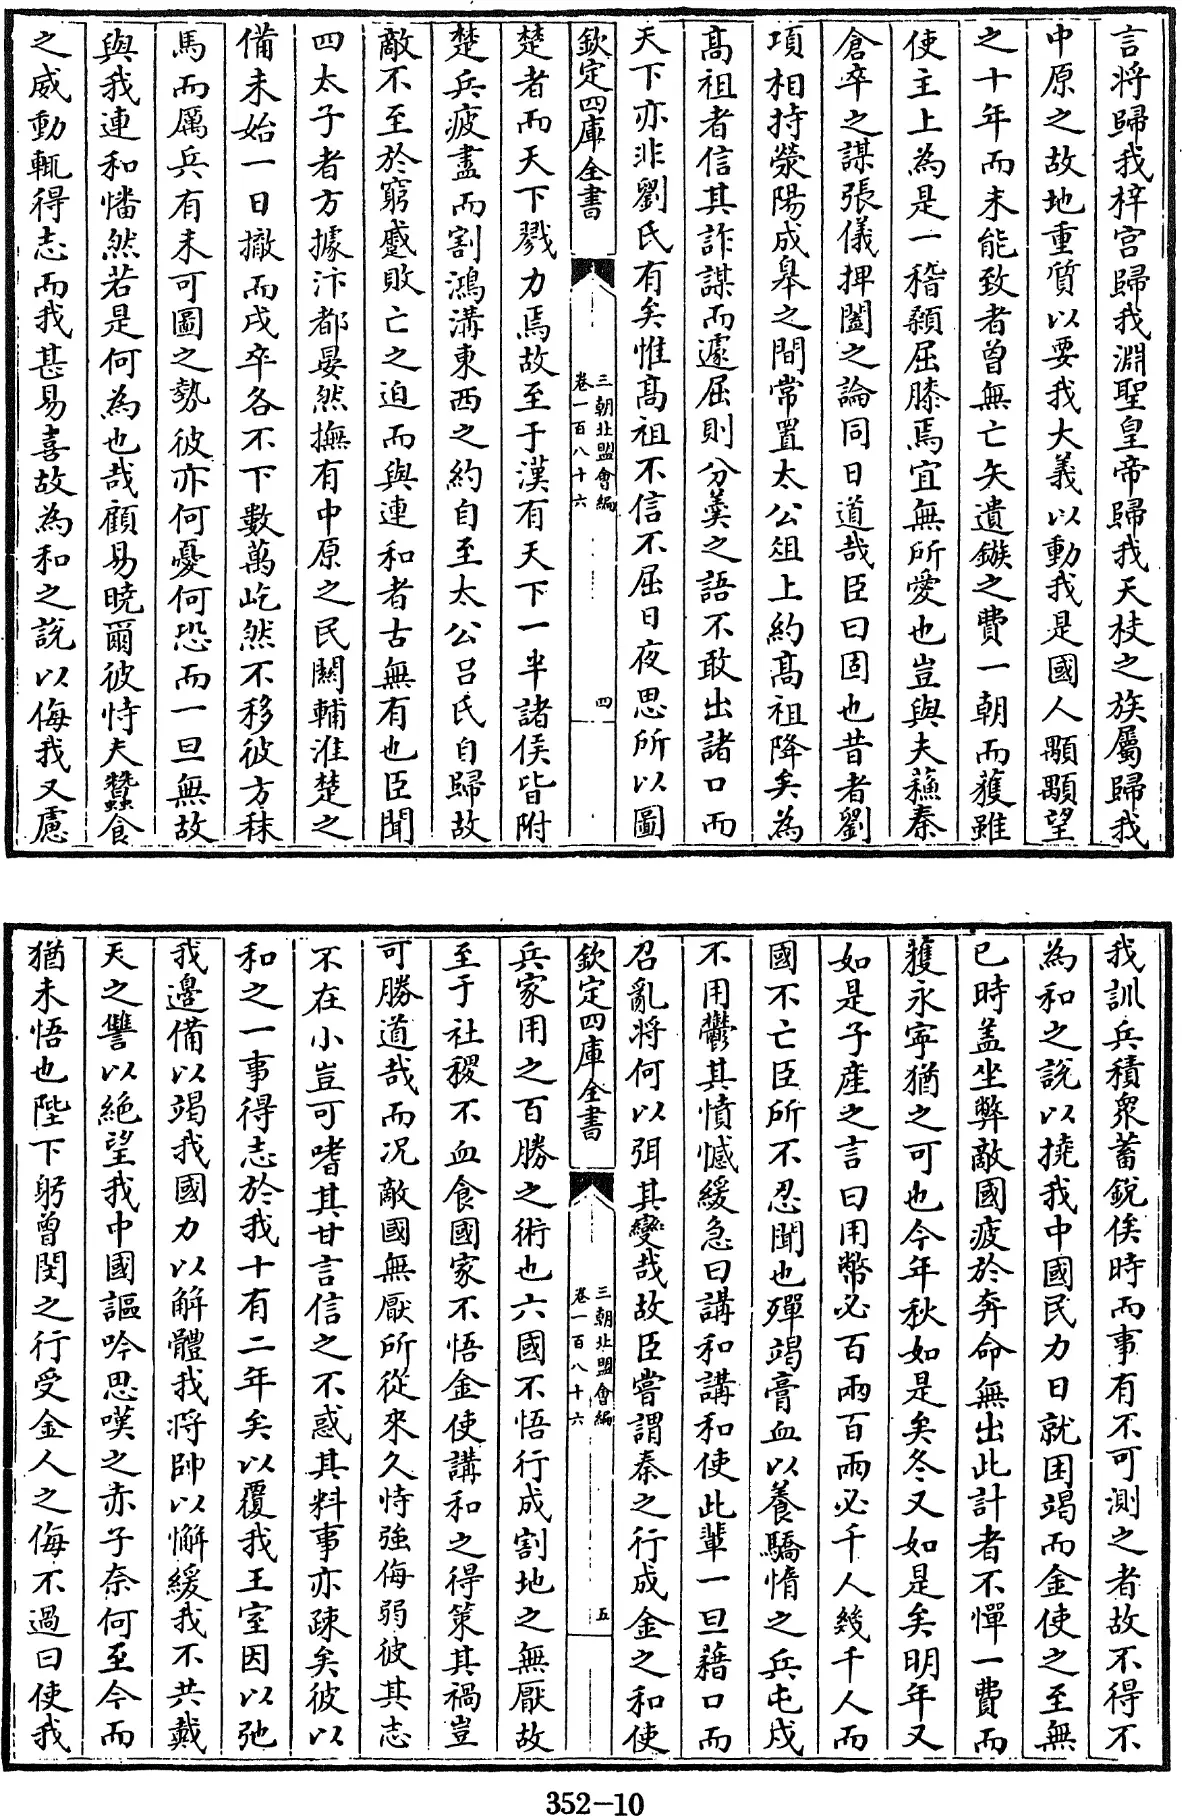 言將歸我梓宫歸我淵聖皇帝歸我天枝之族屬歸我
中原之故地重質以要我大義以動我是國人顒顒望
之十年而未能致者曾無亡矢遺鏃之費一朝而獲雖
使主上為是一稽顙屈膝焉宜無所愛也豈與夫蘓秦
倉卒之謀張儀捭闔之論同日道哉臣曰固也昔者劉
項相持滎陽成臯之間常置太公俎上約髙祖降矣為
髙祖者信其詐謀而遽屈則分羮之語不敢出諸口而
天下亦非劉氏有矣惟髙祖不信不屈日夜思所以圖
欽定四庫全書
三朝北盟會編
卷一百八十六
四
楚者而天下戮力焉故至于漢有天下一半諸侯皆附
楚兵疲盡而割鴻溝東西之約自至太公吕氏自歸故
敵不至於窮蹙敗亡之迫而與連和者古無有也臣聞
四太子者方據汴都晏然撫有中原之民關輔淮楚之
備未始一日撤而戍卒各不下數萬屹然不移彼方秣
馬而厲兵有未可圖之勢彼亦何憂何恐而一旦無故
與我連和憣然若是何為也哉顧易曉爾彼恃夫蠶食
之威動輒得志而我甚易喜故為和之說以侮我又慮
我訓兵積衆蓄銳俟時而事有不可測之者故不得不
為和之說以撓我中國民力日就困竭而金使之至無
已時盖坐弊敵國疲於奔命無出此計者不憚一費而
獲永寜猶之可也今年秋如是矣冬又如是矣明年又
如是子產之言曰用幣必百兩百兩必千人幾千人而
國不亡臣所不忍聞也殫竭膏血以養驕惰之兵屯戍
不用鬱其憤憾緩急曰講和講和使此輩一旦藉口而
召亂將何以弭其變哉故臣嘗謂秦之行成金之和使
欽定四庫全書
三朝北盟會編
卷一百八十六
五
兵家用之百勝之術也六國不悟行成割地之無厭故
至于社稷不血食國家不悟金使講和之得策其禍豈
可勝道哉而况敵國無厭所從來久恃強侮弱彼其志
不在小豈可嗜其甘言信之不惑其料事亦疎矣彼以
和之一事得志於我十有二年矣以覆我王室因以弛
我邊備以竭我國力以解體我將帥以懈緩我不共戴
天之讐以絶望我中國謳吟思嘆之赤子奈何至今而
猶未悟也陛下躬曾閔之行受金人之侮不過曰使我
352-10